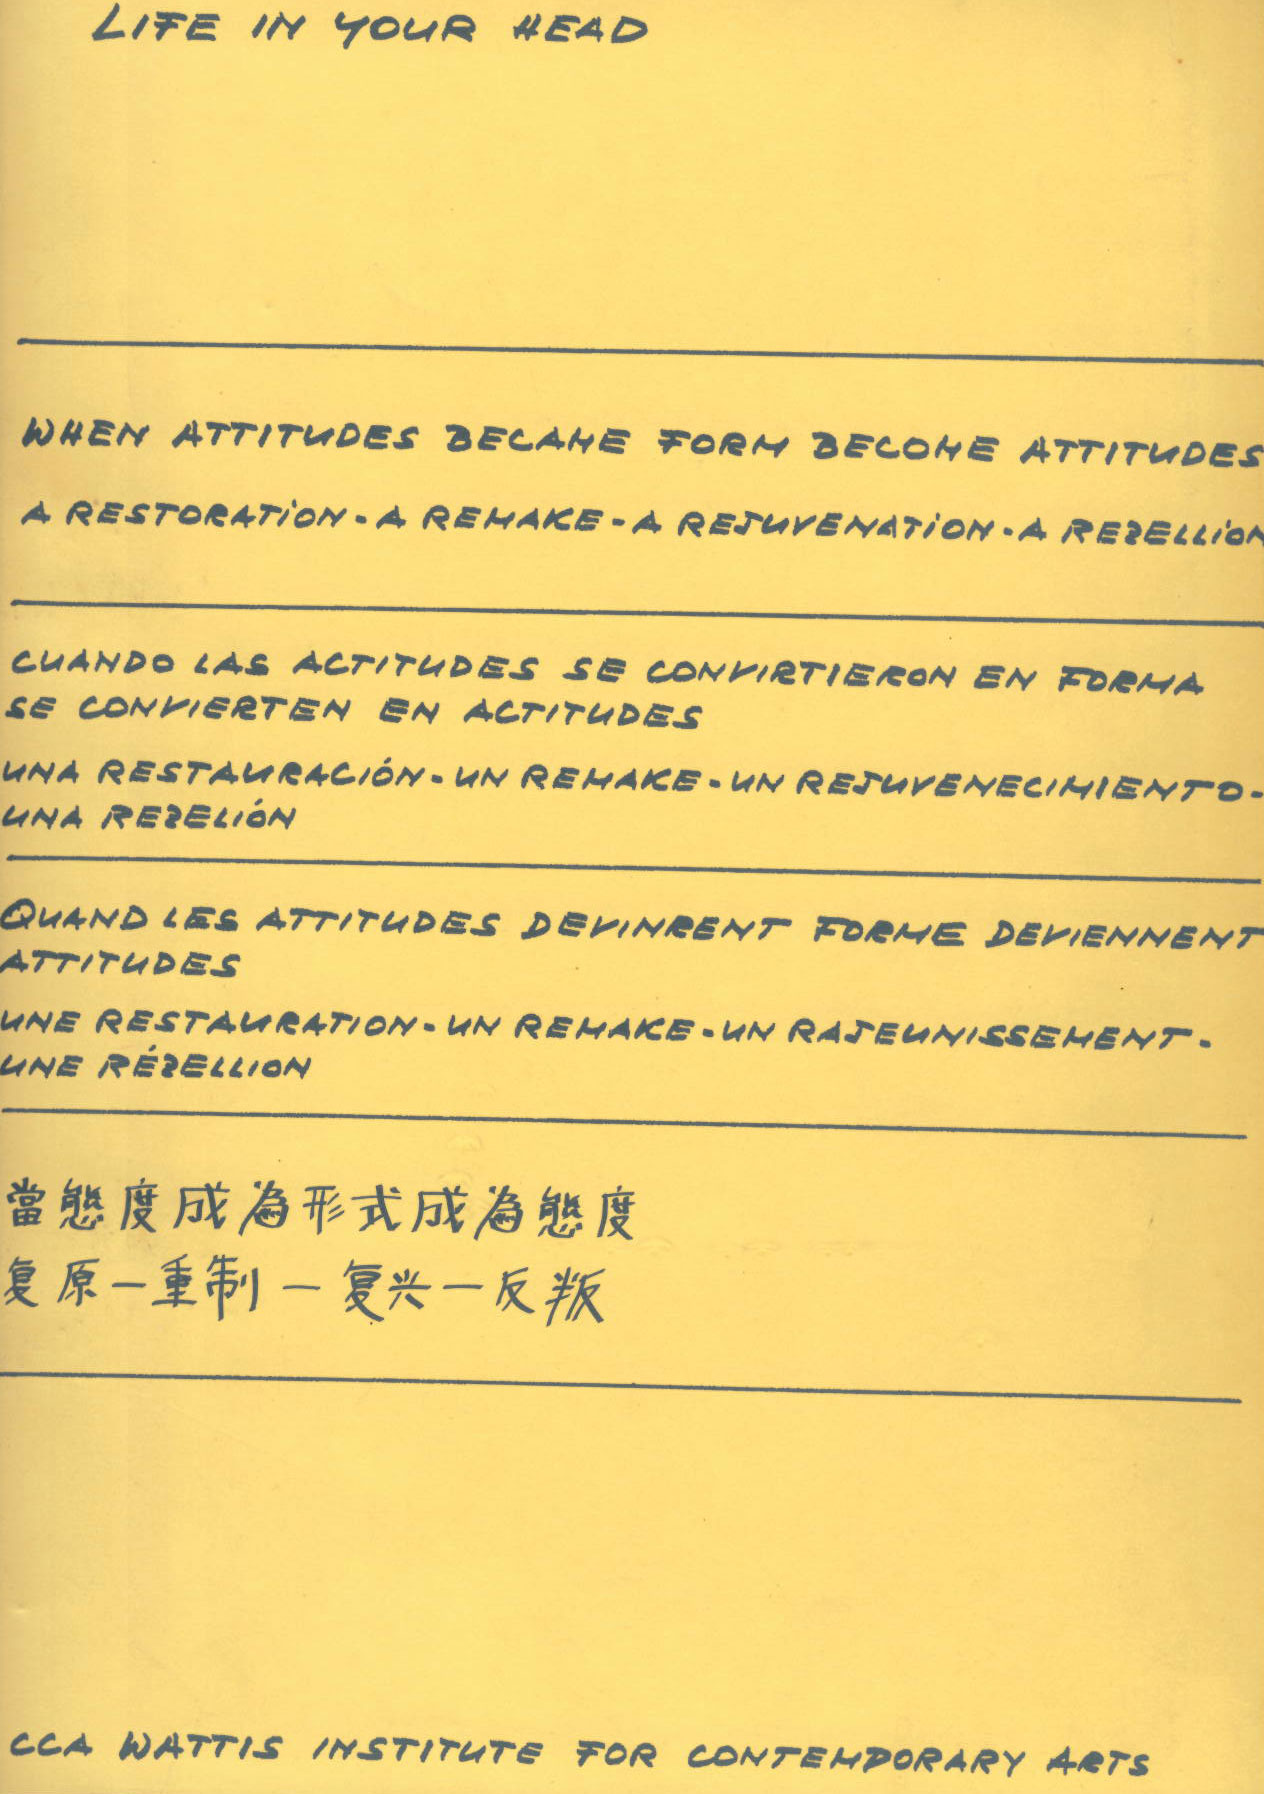 LIFE IN YOUR HEAD
WHEN ATTITUDES BECAME FORM BECOME ATTITUDES
A RESTORATION - A REMAKE - A REJUVENATION - A REBELLION
CUANDO LAS ACTITUDES SE CONVIRTIERON EN FORMA
SE CONVIERTEN EN ACTITUDES
UNA RESTAURACIÓN - UN REMAKE - UN REJUVENECIMIENTO -
UNA REBELIÓN
QUAND LES ATTITUDES DEVINRENT FORME DEVIENNENT
ATTITUDES
UNE RESTAURATION - UN REMAKE - UN RAJEUNISSEMENT -
UNE RÉBELLION
當態度成為形式成為態度
复原一重制一复兴一反叛
CCA WATTIS INSTITUTE FOR CONTEMPORARY ARTS